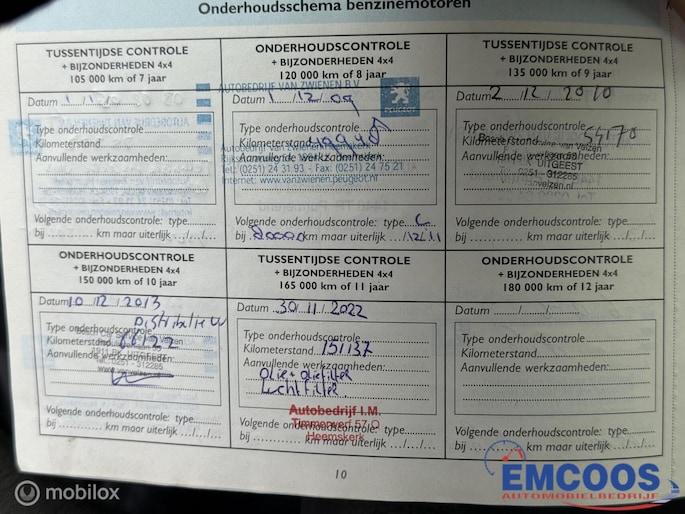 Onderhoudsschema benzinemotoren
TUSSENTIJDSE CONTROLE
+ BIJZONDERHEDEN 4x4
105 000 km of 7 jaar
Datum
Type onderhoudscontrole
Kilometerstand
Aanvullende werkzaamheden:
Volgende onderhoudscontrole: type
bij ........ km maar uiterlijk .../.../...
ONDERHOUDSCONTROLE
+ BIJZONDERHEDEN 4x4
120 000 km of 8 jaar
AUTOBEDRIJF VAN ZWIENEN B.V.
PEUGEOT
Datum 1 / 12 / 09
Type onderhoudscontrole
Kilometerstand
Aanvullende werkzaamheden:
Tel: (0251) 24 31 93 - Fax: (0251) 24 75 21
Internet: www.vanzwienen.peugeot.nl
Volgende onderhoudscontrole: type C
bij 20000 km maar uiterlijk /12/11
TUSSENTIJDSE CONTROLE
+ BIJZONDERHEDEN 4x4
135 000 km of 9 jaar
Datum 2 / 12 / 2010
Type onderhoudscontrole
Kilometerstand 54170
Aanvullende werkzaamheden:
UITGEEST
0251 - 312285
Volgende onderhoudscontrole: type
bij ........ km maar uiterlijk .../.../...
ONDERHOUDSCONTROLE
+ BIJZONDERHEDEN 4x4
150 000 km of 10 jaar
Datum 10 / 12 / 2013
Type onderhoudscontrole
Kilometerstand
Aanvullende werkzaamheden:
Tel.: 0251 - 312285
Volgende onderhoudscontrole: type
bij ........ km maar uiterlijk .../.../...
TUSSENTIJDSE CONTROLE
+ BIJZONDERHEDEN 4x4
165 000 km of 11 jaar
Datum 30 / 11 / 2022
Type onderhoudscontrole
Kilometerstand 151137
Aanvullende werkzaamheden:
olie + oliefilter
Luchtfilter
Autobedrijf I.M.
Timmerwerf 57 O
Heemskerk
Volgende onderhoudscontrole: type
bij ........ km maar uiterlijk .../.../...
ONDERHOUDSCONTROLE
+ BIJZONDERHEDEN 4x4
180 000 km of 12 jaar
Datum ......./......./.......
Type onderhoudscontrole
Kilometerstand
Aanvullende werkzaamheden:
Volgende onderhoudscontrole: type
bij ........ km maar uiterlijk .../.../...
10
mobilox
EMCOOS
AUTOMOBIELBEDRIJF